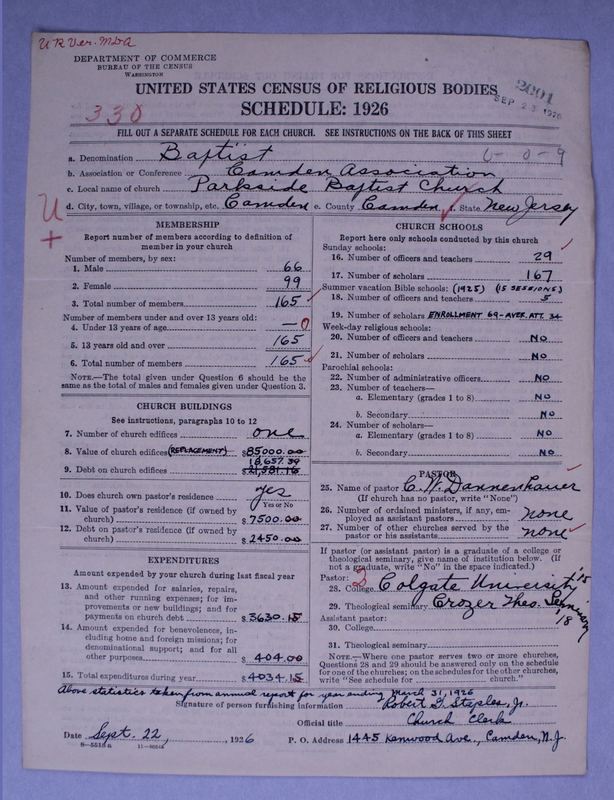 U R Ver. MDA
DEPARTMENT OF COMMERCE
BUREAU OF THE CENSUS
WASHINGTON
UNITED STATES CENSUS OF RELIGIOUS BODIES
SCHEDULE: 1926
2601
SEP 25 1926
330
FILL OUT A SEPARATE SCHEDULE FOR EACH CHURCH. SEE INSTRUCTIONS ON THE BACK OF THIS SHEET
6-0-9
a. Denomination Baptist
b. Association or Conference Camden Association
c. Local name of church Parkside Baptist Church
d. City, town, village, or township, etc. Camden e. County Camden f. State New Jersey
U
+
MEMBERSHIP
Report number of members according to definition of
member in your church
Number of members, by sex:
1. Male 66
2. Female 99
3. Total number of members 165
Number of members under and over 13 years old:
4. Under 13 years of age — 0
5. 13 years old and over 165
6. Total number of members 165
NOTE.—The total given under Question 6 should be the
same as the total of males and females given under Question 3.
CHURCH BUILDINGS
See instructions, paragraphs 10 to 12
7. Number of church edifices one
8. Value of church edifices (REPLACEMENT) $85000.00
18,657.39
9. Debt on church edifices $21,581.16
10. Does church own pastor's residence yes
Yes or No
11. Value of pastor's residence (if owned by
church) $7500.00
12. Debt on pastor's residence (if owned by
church) $2450.00
EXPENDITURES
Amount expended by your church during last fiscal year
13. Amount expended for salaries, repairs,
and other running expenses; for im-
provements or new buildings; and for
payments on church debt $3630.15
14. Amount expended for benevolences, in-
cluding home and foreign missions; for
denominational support; and for all
other purposes $404.00
15. Total expenditures during year $4034.15
CHURCH SCHOOLS
Report here only schools conducted by this church
Sunday schools:
16. Number of officers and teachers 29
17. Number of scholars 167
Summer vacation Bible schools: (1925) (15 SESSIONS)
18. Number of officers and teachers 5
19. Number of scholars ENROLLMENT 69-AVER. ATT. 34
Week-day religious schools:
20. Number of officers and teachers NO
21. Number of scholars NO
Parochial schools:
22. Number of administrative officers NO
23. Number of teachers—
a. Elementary (grades 1 to 8) NO
b. Secondary NO
24. Number of scholars—
a. Elementary (grades 1 to 8) NO
b. Secondary NO
PASTOR
25. Name of pastor C. W. Dannenhauer
(If church has no pastor, write "None")
26. Number of ordained ministers, if any, em-
ployed as assistant pastors none
27. Number of other churches served by the
pastor or his assistants none
If pastor (or assistant pastor) is a graduate of a college or
theological seminary, give name of institution below. (If
not a graduate, write "No" in the space indicated.)
Pastor: 2
28. College Colgate University '15
29. Theological seminary Crozer Theo. Seminary '18
Assistant pastor:
30. College
31. Theological seminary
NOTE.—Where one pastor serves two or more churches,
Questions 28 and 29 should be answered only on the schedule
for one of the churches; on the schedules for the other churches,
write "See schedule for church."
Above statistics taken from annual report for year ending March 31, 1926
Signature of person furnishing information Robert G. Staples, Jr.
Official title Church Clerk
Date Sept. 22, , 1926 P. O. Address 1445 Kenwood Ave., Camden, N.J.